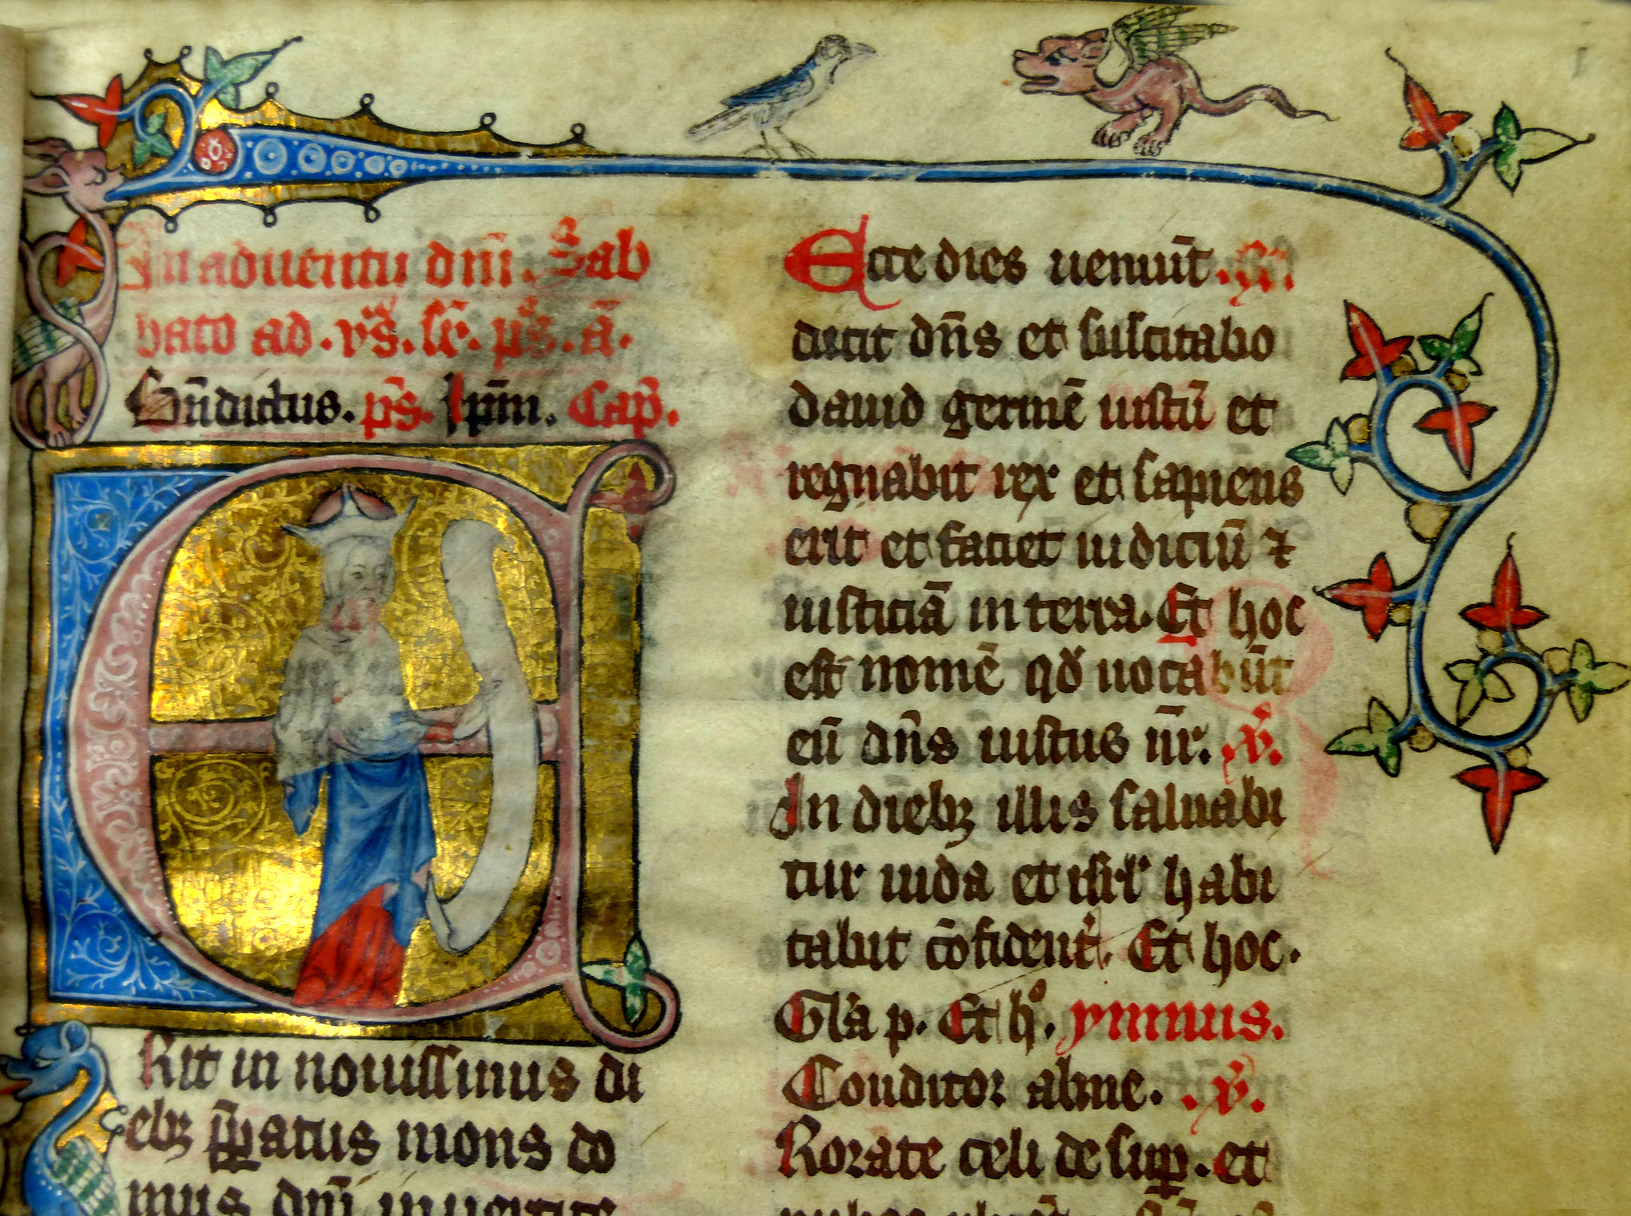 In aduentu dn̄i. Sab
bato ad. vs̄. sr̄. ps̄. ā.
Bn̄dictus. ps̄. Ipm̄. Cap̄.
Erit in nouissimus di
ebꝫ p̄patus mons do
mus dn̄i in uertice
Ecce dies ueniūt. R̄
dicit dn̄s et suscitabo
dauid germē iustū et
regnabit rex et sapiens
erit et faciet iudiciū ⁊
iusticiā in terra. Et hoc
est nomē qd̄ uocabūt
eū dn̄s iustus nr̄. v̄.
In diebꝫ illis saluabi
tur iuda et isrl̄ habi
tabit cōfident̄. Et hoc.
Gl̄a p. Et h°. ymnus.
Conditor alme. v̄.
Rorate celi desup̄. et